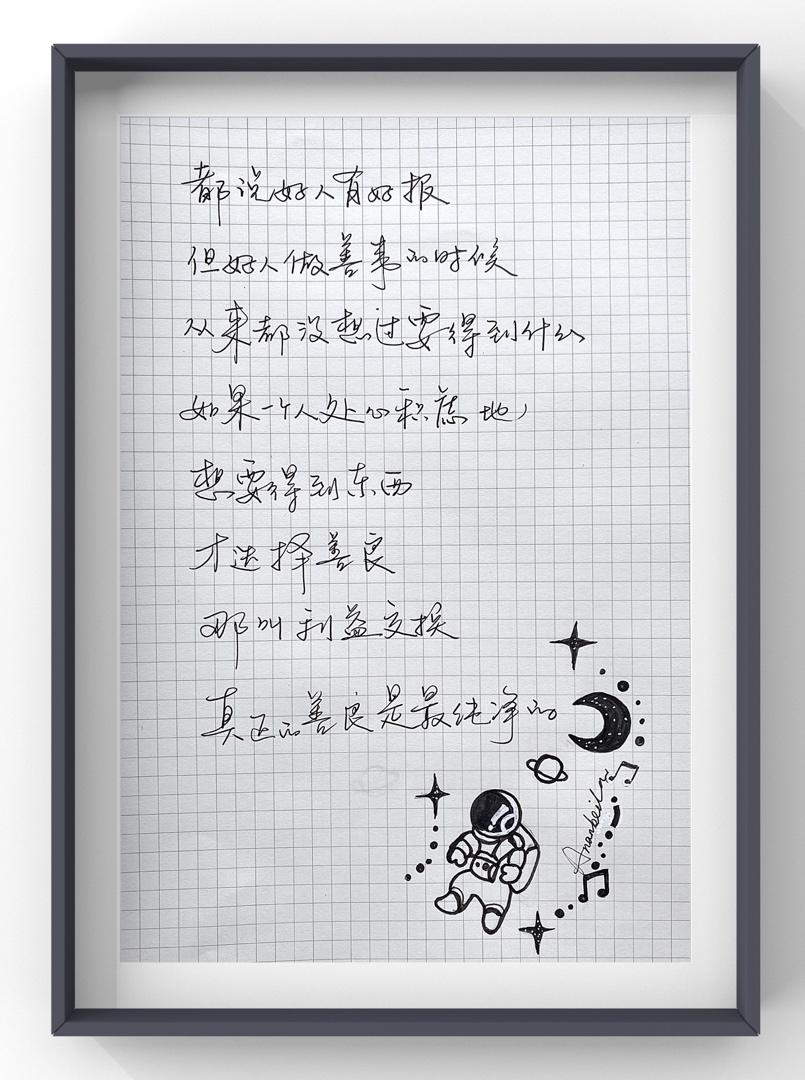 都说好人有好报
但好人做善事的时候
从来都没想过要得到什么
如果一个人处心积虑地,
想要得到东西
才选择善良
那叫利益交换
真正的善良是最纯净的